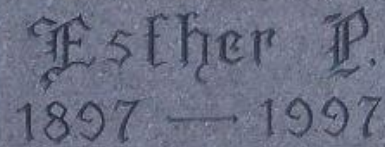 Esther P.
1897 — 1997